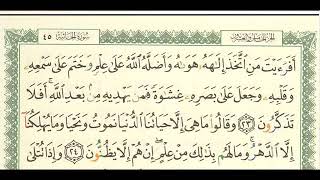 الجزء الخامس والعشرون سورة الجاثية ٤٥
أَفَرَءَيْتَ مَنِ ٱتَّخَذَ إِلَٰهَهُۥ هَوَىٰهُ وَأَضَلَّهُ ٱللَّهُ عَلَىٰ عِلْمٍ وَخَتَمَ عَلَىٰ سَمْعِهِۦ
وَقَلْبِهِۦ وَجَعَلَ عَلَىٰ بَصَرِهِۦ غِشَٰوَةً فَمَن يَهْدِيهِ مِنۢ بَعْدِ ٱللَّهِ أَفَلَا
تَذَكَّرُونَ ٢٣ وَقَالُوا۟ مَا هِىَ إِلَّا حَيَاتُنَا ٱلدُّنْيَا نَمُوتُ وَنَحْيَا وَمَا يُهْلِكُنَآ
إِلَّا ٱلدَّهْرُ وَمَا لَهُم بِذَٰلِكَ مِنْ عِلْمٍ إِنْ هُمْ إِلَّا يَظُنُّونَ ٢٤ وَإِذَا تُتْلَىٰ